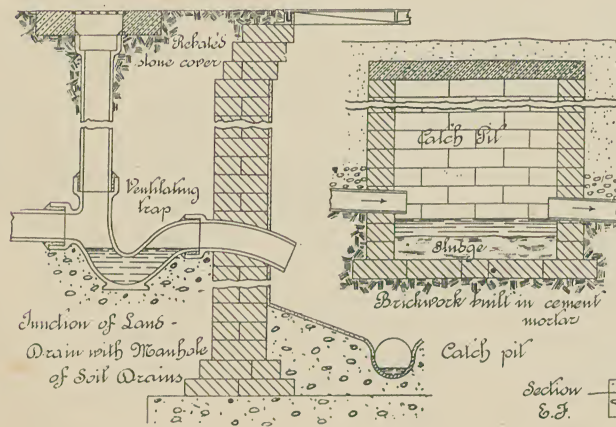 Rebated
stone cover
Ventilating
trap
Junction of Land-
Drain with Manhole
of Soil Drains
Catch Pit
Sludge
Brickwork built in cement
mortar
Catch pit
Section
E.F.